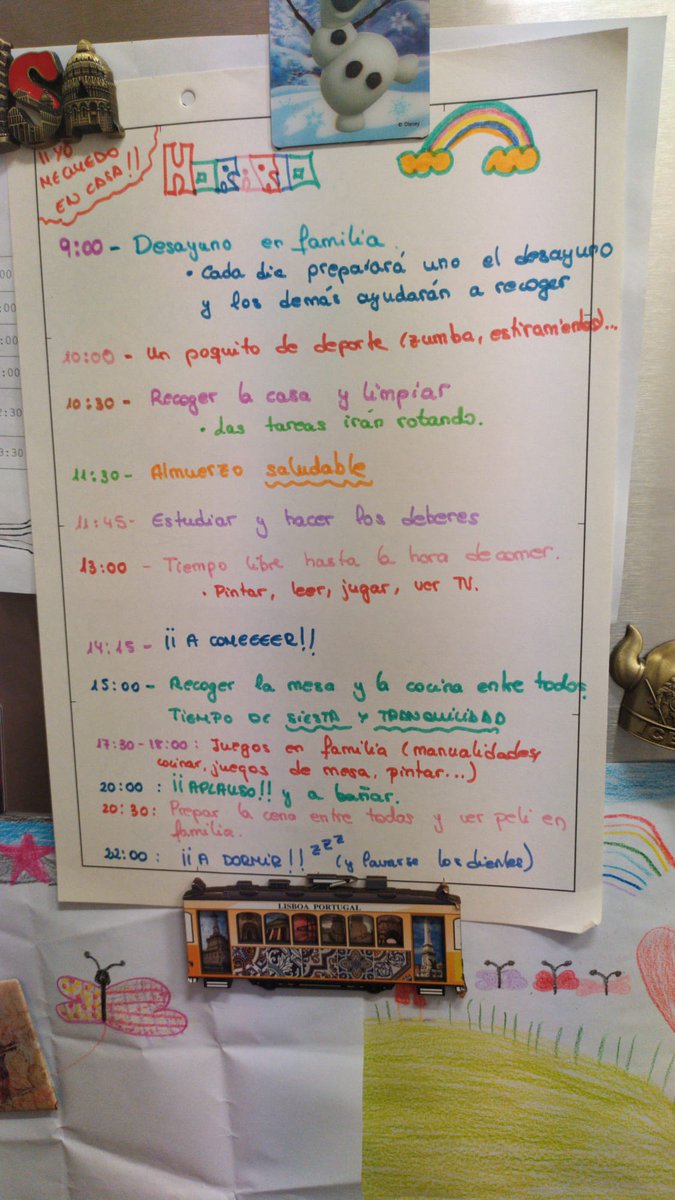 ISA
© Disney
¡¡YO
ME QUEDO
EN CASA!!
HORARIO
9:00 - Desayuno en familia.
• Cada día preparará uno el desayuno
y los demás ayudarán a recoger
10:00 - Un poquito de deporte (zumba, estiramientos)...
10:30 - Recoger la casa y limpiar
• Las tareas irán rotando.
11:30 - Almuerzo saludable
11:45 - Estudiar y hacer los deberes
13:00 - Tiempo libre hasta la hora de comer.
• Pintar, leer, jugar, ver TV.
14:15 - ¡¡A COMEEEER!!
15:00 - Recoger la mesa y la cocina entre todas,
TIEMPO DE SIESTA y TRANQUILIDAD
17:30-18:00: Juegos en familia (manualidades,
cocinar, juegos de mesa, pintar...)
20:00: ¡¡APLAUSO!! y a bañar.
20:30: Prepar la cena entre todas y ver peli en
familia.
22:00: ¡¡A DORMIR!! zzz (y lavarse los dientes)
LISBOA PORTUGAL